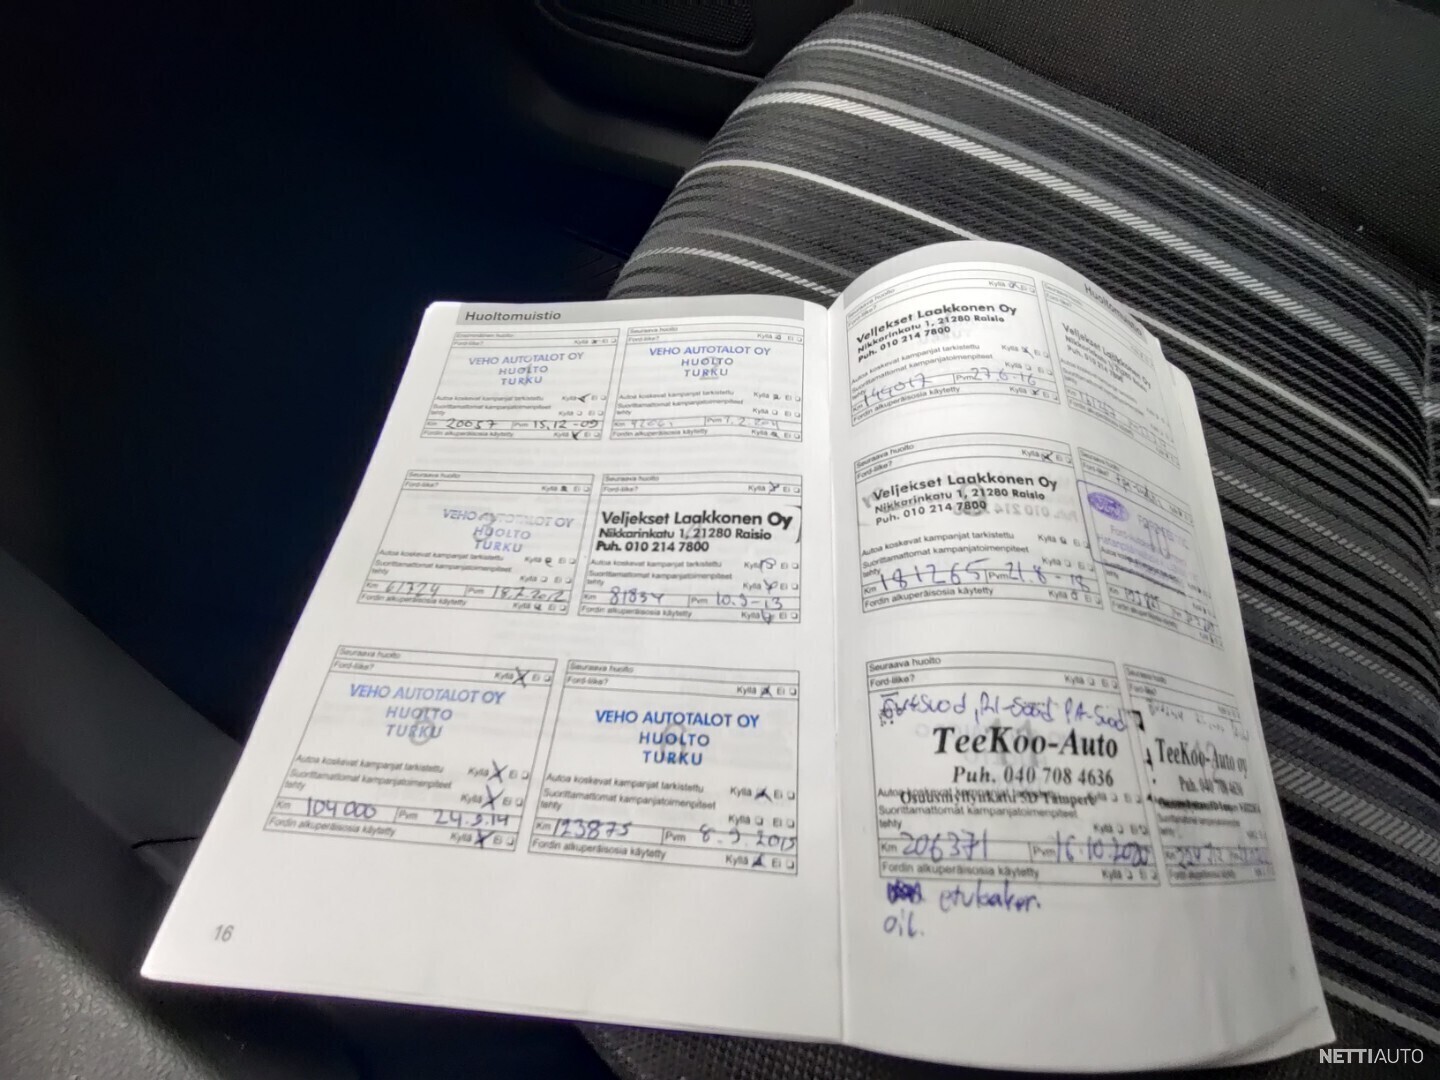 Huoltomuistio
Ensimmäinen huolto
Ford-liike?
Kyllä Ei
VEHO AUTOTALOT OY
HUOLTO
TURKU
Autoa koskevat kampanjat tarkistettu
Kyllä Ei
Suorittamattomat kampanjatoimenpiteet
tehty
Kyllä Ei
Km 20057 Pvm 15.12-09
Fordin alkuperäisosia käytetty
Kyllä Ei
Seuraava huolto
Ford-liike?
Kyllä Ei
VEHO AUTOTALOT OY
HUOLTO
TURKU
Autoa koskevat kampanjat tarkistettu
Kyllä Ei
Suorittamattomat kampanjatoimenpiteet
tehty
Kyllä Ei
Km Pvm
Fordin alkuperäisosia käytetty
Kyllä Ei
Seuraava huolto
Ford-liike?
Kyllä Ei
VEHO AUTOTALOT OY
HUOLTO
TURKU
Autoa koskevat kampanjat tarkistettu
Kyllä Ei
Suorittamattomat kampanjatoimenpiteet
tehty
Kyllä Ei
Km 61724 Pvm 18.7.2012
Fordin alkuperäisosia käytetty
Kyllä Ei
Seuraava huolto
Ford-liike?
Kyllä Ei
Veljekset Laakkonen Oy
Nikkarinkatu 1, 21280 Raisio
Puh. 010 214 7800
Autoa koskevat kampanjat tarkistettu
Kyllä Ei
Suorittamattomat kampanjatoimenpiteet
tehty
Kyllä Ei
Km 81854 Pvm 10.9-13
Fordin alkuperäisosia käytetty
Kyllä Ei
Seuraava huolto
Ford-liike?
Kyllä Ei
VEHO AUTOTALOT OY
HUOLTO
TURKU
Autoa koskevat kampanjat tarkistettu
Kyllä Ei
Suorittamattomat kampanjatoimenpiteet
tehty
Kyllä Ei
Km 104000 Pvm 24.9.14
Fordin alkuperäisosia käytetty
Kyllä Ei
Seuraava huolto
Ford-liike?
Kyllä Ei
VEHO AUTOTALOT OY
HUOLTO
TURKU
Autoa koskevat kampanjat tarkistettu
Kyllä Ei
Suorittamattomat kampanjatoimenpiteet
tehty
Kyllä Ei
Km 123875 Pvm 8.9.2015
Fordin alkuperäisosia käytetty
Kyllä Ei
16
Huoltomuistio
Seuraava huolto
Ford-liike?
Kyllä Ei
Veljekset Laakkonen Oy
Nikkarinkatu 1, 21280 Raisio
Puh. 010 214 7800
Autoa koskevat kampanjat tarkistettu
Kyllä Ei
Suorittamattomat kampanjatoimenpiteet
tehty
Kyllä Ei
Km 144017 Pvm 27.6-16
Fordin alkuperäisosia käytetty
Kyllä Ei
Veljekset Laakkonen Oy
Nikkarinkatu 1, 21280
Puh. 010 214 7800
Seuraava huolto
Ford-liike?
Kyllä Ei
Veljekset Laakkonen Oy
Nikkarinkatu 1, 21280 Raisio
Puh. 010 214 7800
Autoa koskevat kampanjat tarkistettu
Kyllä Ei
Suorittamattomat kampanjatoimenpiteet
tehty
Kyllä Ei
Km 181265 Pvm 21.8-18
Fordin alkuperäisosia käytetty
Kyllä Ei
Seuraava huolto
Ford-liike?
Ford
Seuraava huolto
Ford-liike?
Kyllä Ei
TeeKoo-Auto
Puh. 040 708 4636
Autoa koskevat kampanjat tarkistettu
Osuusmyllynkatu 5D Tampere
Kyllä Ei
Suorittamattomat kampanjatoimenpiteet
tehty
Kyllä Ei
Km 206371 Pvm 16.10.2020
Fordin alkuperäisosia käytetty
Kyllä Ei
oil.
Seuraava huolto
Ford-liike?
TeeKoo-Auto oy
Puh. 040 708 4636
NETTIAUTO